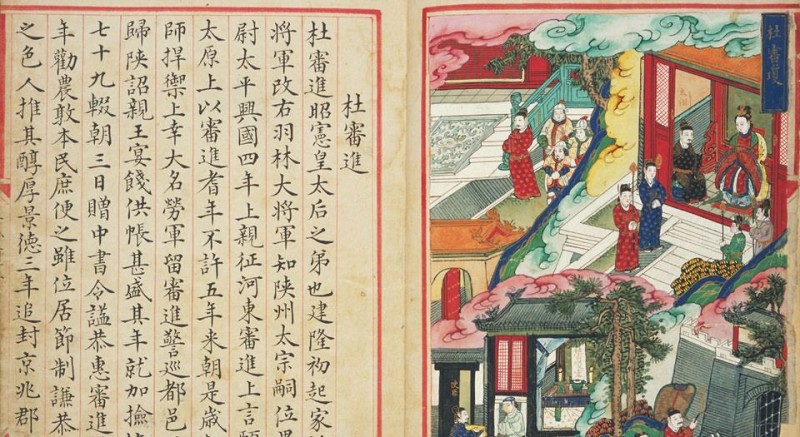 杜審瓊
杜審進
杜審進昭憲皇太后之弟也建隆初起家
將軍改右羽林大將軍知陝州太宗嗣位
尉太平興國四年上親征河東審進上言
太原上以審進耆年不許五年来朝是歲
師捍禦上幸大名勞軍留審進警巡都邑
歸陝詔親王宴餞供帳甚盛其年就加檢
七十九輟朝三日贈中書令謚恭惠審進
年勸農敦本民庶便之雖位居節制謙恭
之色人推其醇厚景德三年追封京兆郡